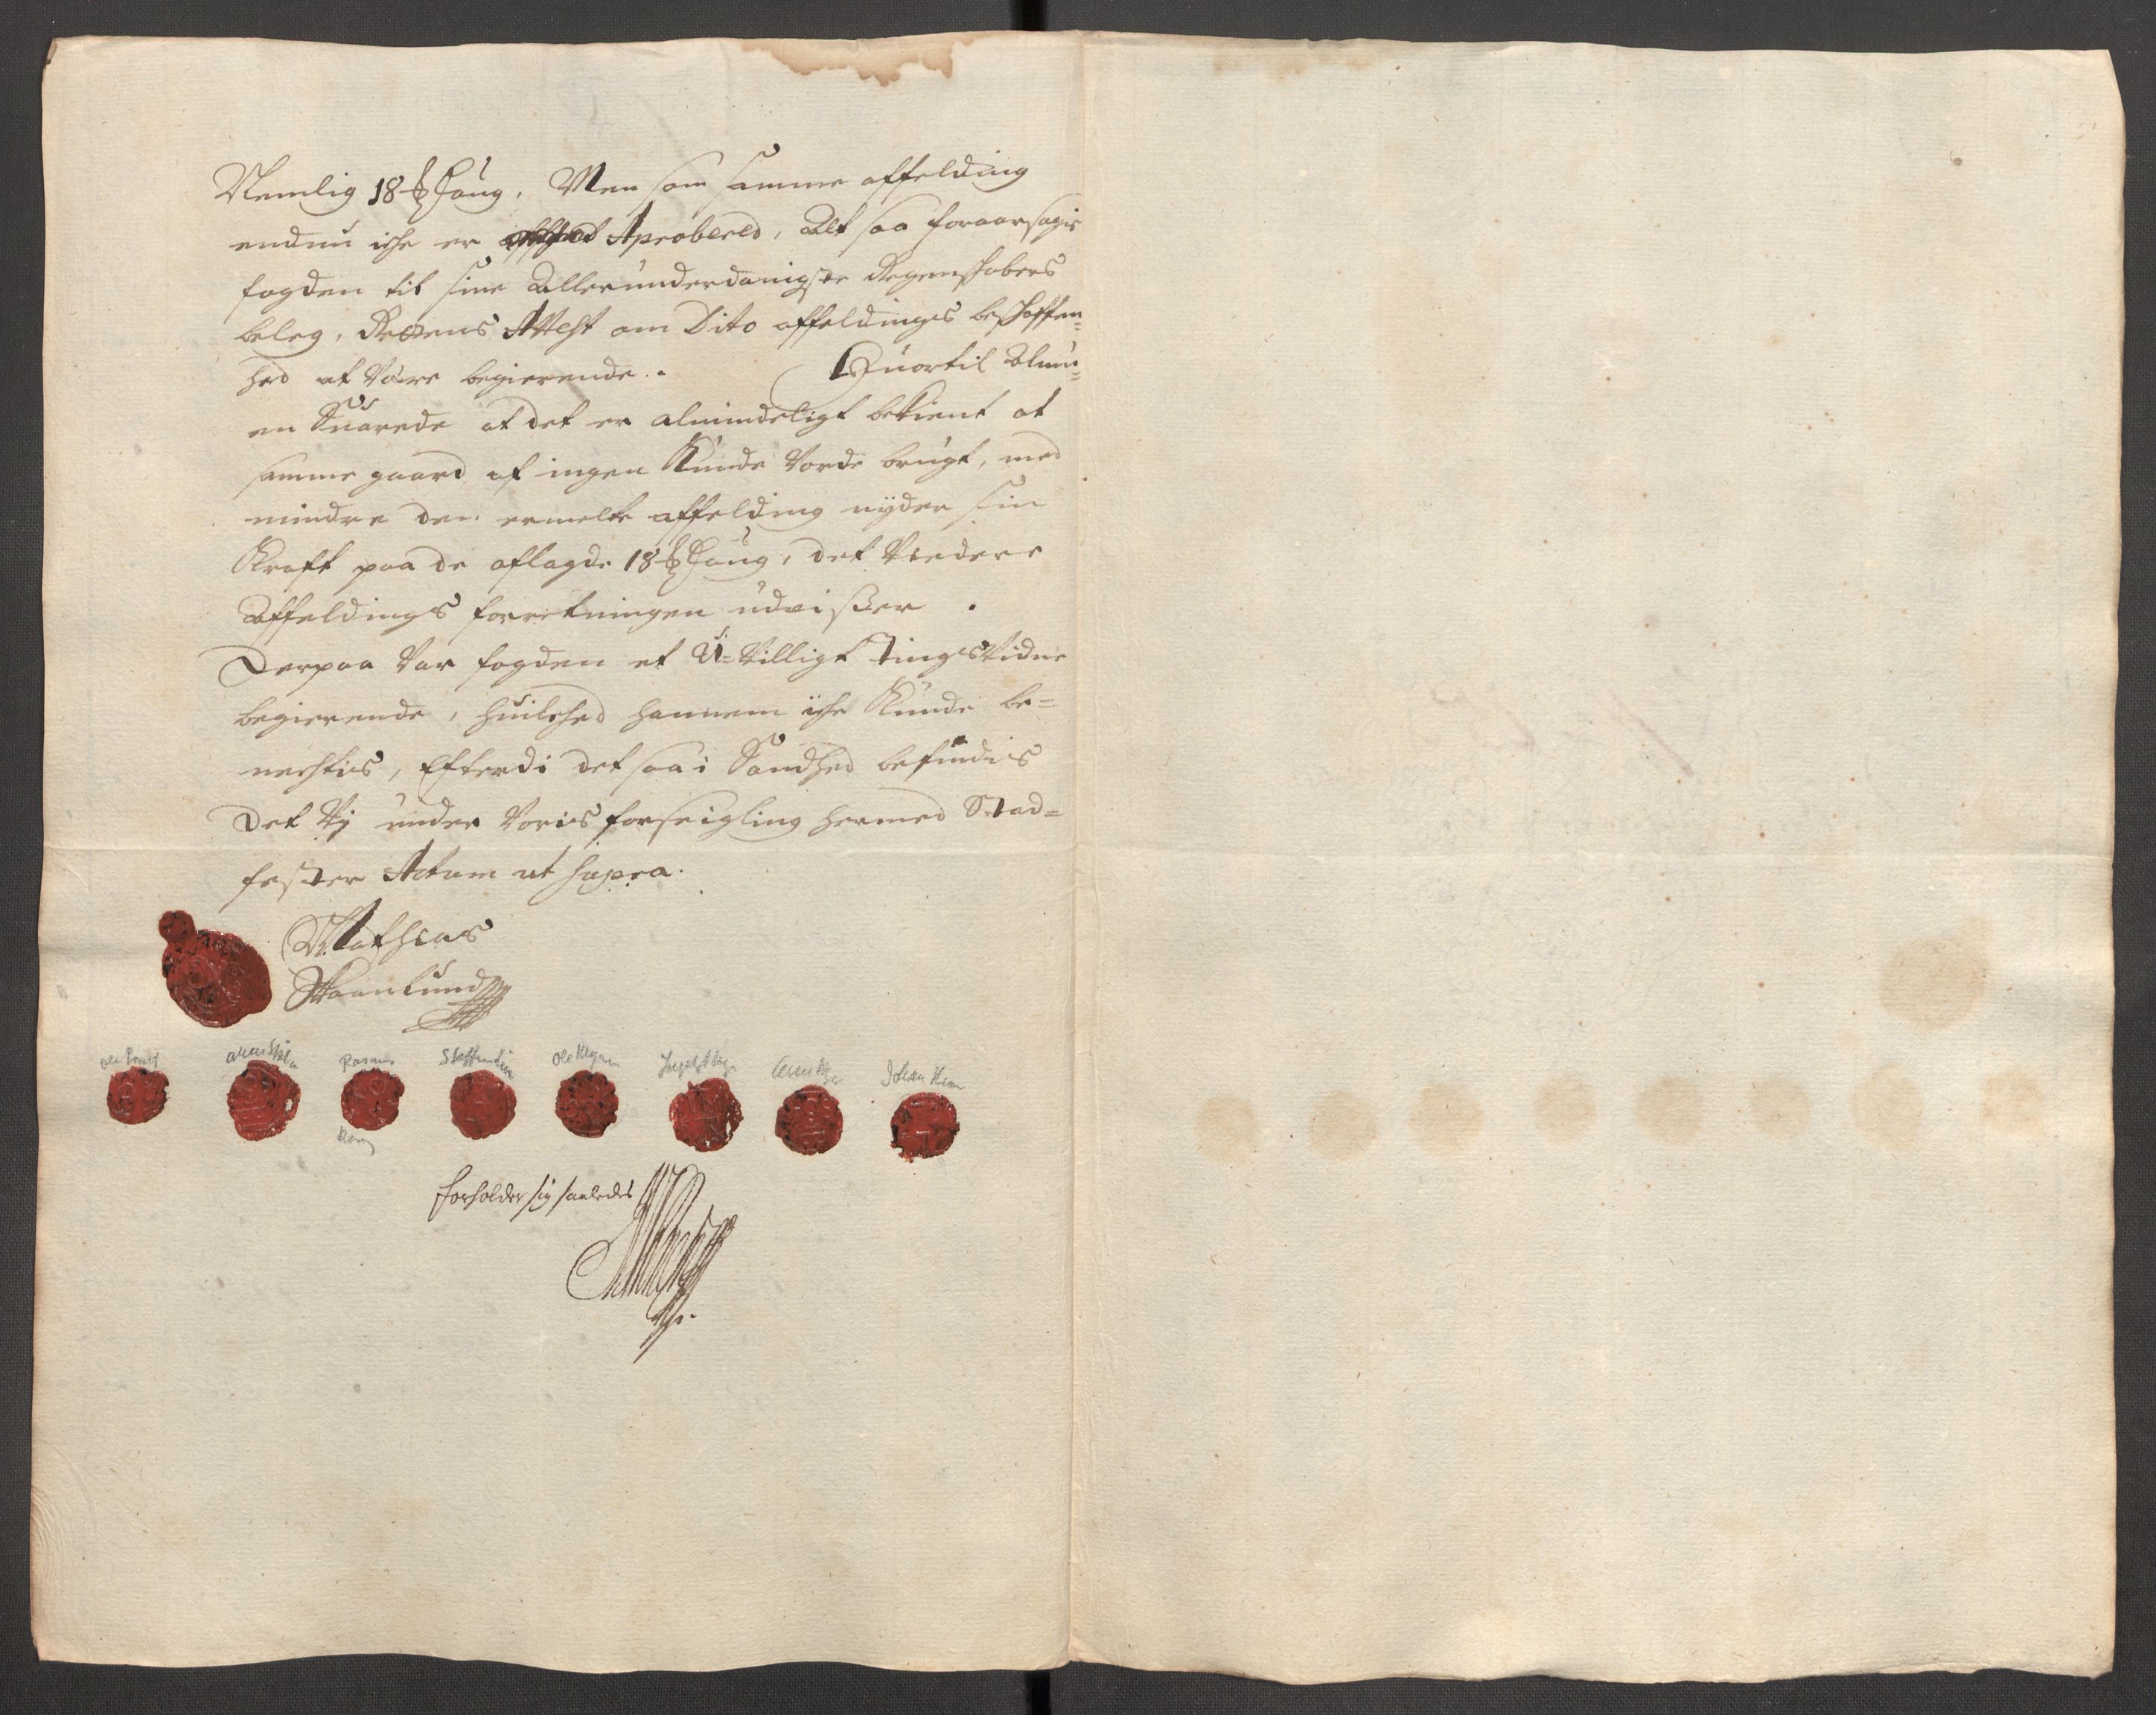 Nemlig 18 ℔ Haug, Men som samme affelding
endnu iche er Aprobered, Alt saa foraarsagis
fogden til sine Allerunderdanigste Regenskabers
beleg, Rettens Attest om Dito affeldings beschaffen=
hed at Være begierende. Huortil Almu=
en Suarede at det er almindeligt bekient at
samme gaard af ingen Kunde Vorde brugt, med
mindre den ermelte affelding nyder sin
Kraft paa de aflagde 18 ℔ Haug, det Viedere
Affeldings forretningen udvisser.
Derpaa Var fogden et U-Villigt Tingsvidne
begierende, huilched hannem iche Kunde be=
nechtis, Efterdi det saa i Sandhed befindis
Det Vj under Voris forseigling hermed Stad=
fester Actum ut supra.
Mathias
Skaanlund
Rasmus
forholder sig saaledes